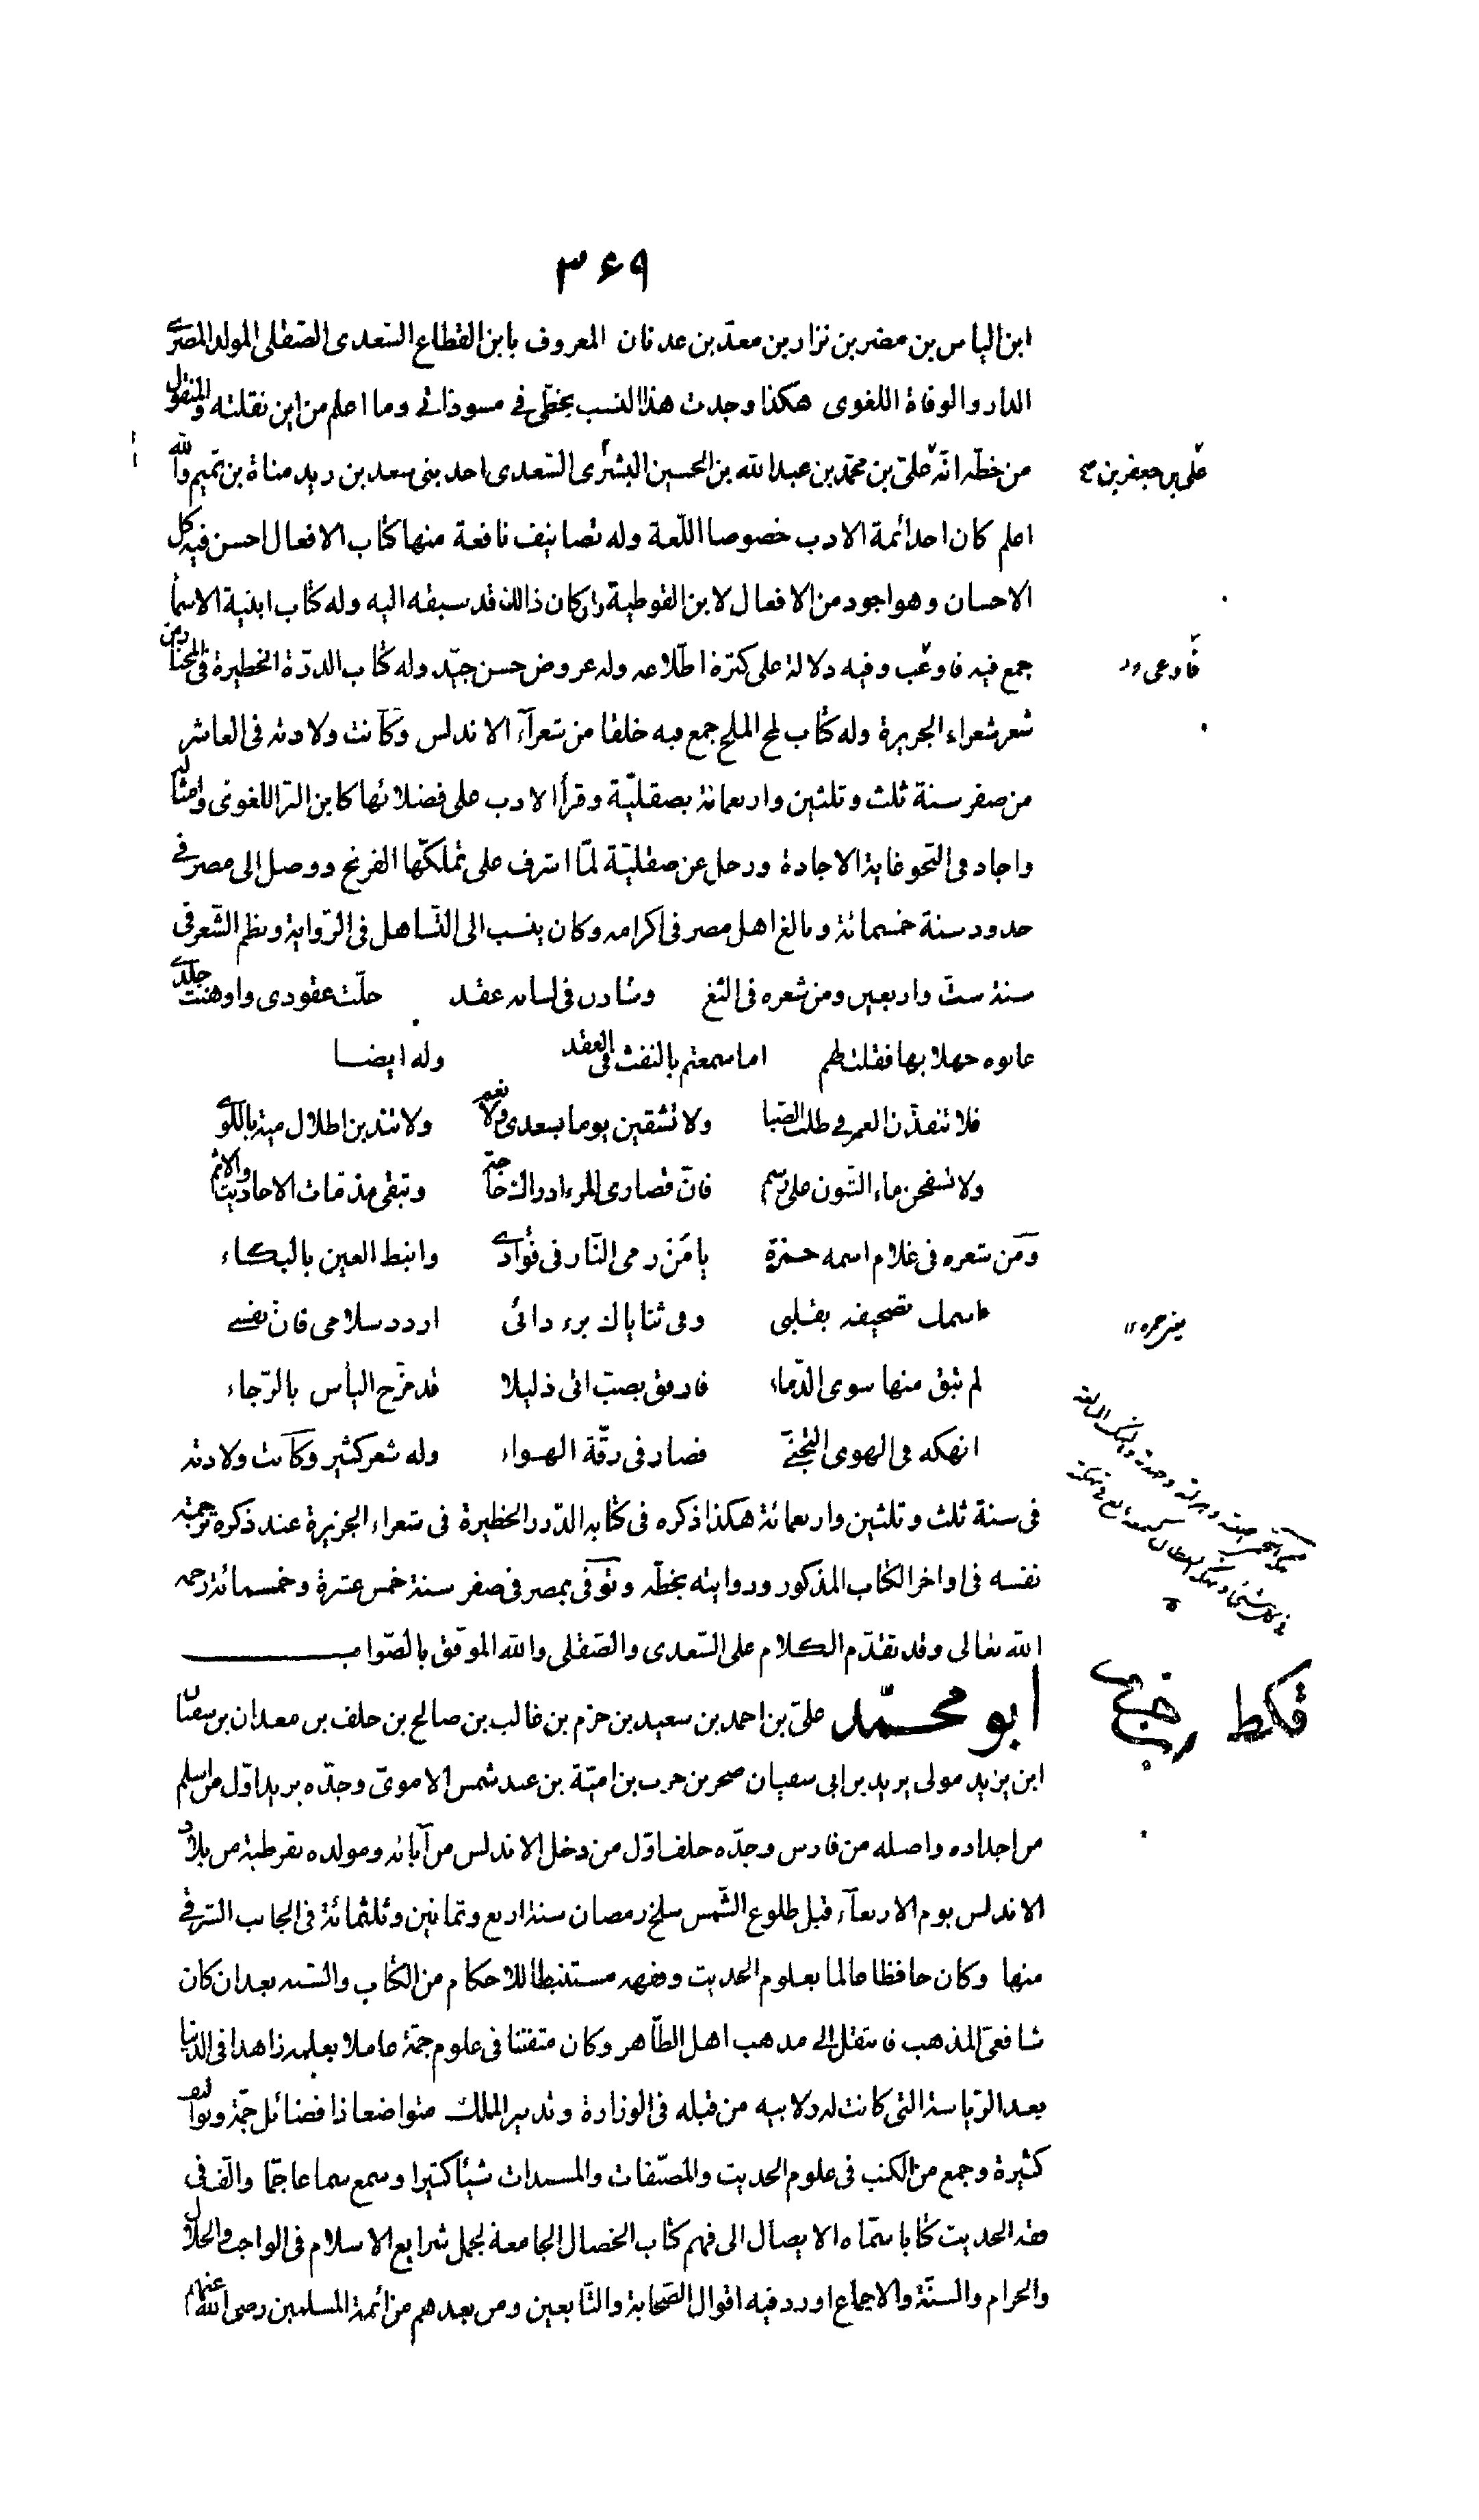 ٣۶٩
ابن الياس بن مضر بن نزار بن معدّ بن عدنان المعروف بابن القطاع السّعدى الصّقلى المولد المصرى
الدار والوفاة اللغوى هكذا وجدت هذا النسب بخطّى فى مسوداتى وما اعلم من اين نقلته والمنقول
من خطّه انّه علىّ بن محمّد بن عبد الله بن الحسين الشنترى السّعدى احد بنى سعد بن زيد مناة بن تميم والله
علىّ بن جعفر بن صح
اعلم كان احد ائمة الادب خصوصا اللّغة وله تصانيف نافعة منها كتاب الافعال احسن فيه كل
الاحسان وهو اجود من الافعال لابن القوطية وان كان ذالك قد سبقه اليه وله كتاب ابنية الاسما
جمع فيه فاوعب وفيه دلالة على كثرة اطّلاعه وله عروض حسن جيّد وله كتاب الدرّة الخطيرة فى المختار من
فاوعى
شعر شعراء الجزيرة وله كتاب لمح الملح جمع فيه خلقا من شعرآء الاندلس وكانت ولادته فى العاشر
من صفر سنة ثلث وثلثين واربعمائة بصقليّة وقرأ الادب على فضلائها كابن البرّ اللغوى وامثاله
واجاد فى النّحو غاية الاجادة ورحل عن صقليّة لمّا اشرف على تملّكها الفرنج ووصل الى مصر فى
حدود سنة خمسمائة وبالغ اهل مصر فى اكرامه وكان ينسب الى التّساهل فى الرّواية ونظم الشّعر فى
سنة ستّ واربعين ومن شعره فى الثغ وشادن فى لسانه عقد حلّت عقودى واوهنت جلدى
عابوه جهلا بها فقلت لهم اما سمعتم بالنفث فى العقد وله ايضا
فلا تنفدّن العمر فى طلب الصّبا ولا تشقين يوما بسعدى ولا نعم ولا تندبن اطلال مية باللوى
ولا تسفحن ماء الشّون على رسم فانّ قصارى المرء ادراك حاجة وتبقى مذمّات الاحاديث والاثم
ومن شعره فى غلام اسمه حمزة يا مَن رمى النّار فى فؤادى وانبط العين بالبكاء
اسمك تصحيفه بقلبى وفى ثناياك برء دائى اردد سلامى فان نفسى
لم تبق منها سوى الذّماء فارفق بصبّ اتى ذليلا قد مزّج اليأس بالرّجاء
انهكه فى الهوى التجنّى فصار فى رقّة الهواء وله شعر كثير وكانت ولادته
فى سنة ثلث وثلثين واربعمائة هكذا ذكره فى كتابه الدّرر الخطيرة فى شعراء الجزيرة عند ذكره ترجمة
نفسه فى اواخر الكتاب المذكور وروايته بخطّه وتوفّى بمصر فى صفر سنة خمس عشرة وخمسمائة رحمه
الله تعالى وقد تقدّم الكلام على السّعدى والصّقلى والله الموفّق بالصّواب
ابو محمّد علىّ بن احمد بن سعيد بن حزم بن غالب بن صالح بن خلف بن معدان بن سفيان
ابن يزيد مولى يزيد بن ابى سفيان صخر بن حرب بن اميّة بن عبد شمس الاموىّ وجدّه يزيد اوّل من اسلم
من اجداده واصله من فارس وجدّه خلف اوّل من دخل الاندلس من آبائه ومولده بقرطبة من بلاد
الاندلس يوم الاربعآء قبل طلوع الشّمس سلخ رمضان سنة اربع وثمانين وثلثمائة فى الجانب الشرقى
منها وكان حافظا عالما بعلوم الحديث وفقهه مستنبطا للاحكام من الكتاب والسّنه بعد ان كان
شافعىّ المذهب فانتقل الى مذهب اهل الظّاهر وكان متفننا فى علوم جمّة عاملا بعلمه زاهدا فى الدنيا
بعد الرّياسة التى كانت له ولابيه من قبله فى الوزارة وتدبير الملك متواضعا ذا فضائل جمّة وتواليف
كثيرة وجمع من الكتب فى علوم الحديث والمصنّفات والمسندات شيئا كثيرا وسمع سماعا جمّا والّف فى
فقه الحديث كتابا سمّاه الايصال الى فهم كتاب الخصال الجامعة لجمل شرايع الاسلام فى الواجب والحلال
والحرام والسنّة والاجماع اورد فيه اقوال الصّحابة والتّابعين ومن بعدهم من ائمة المسلمين رضى الله عنهم